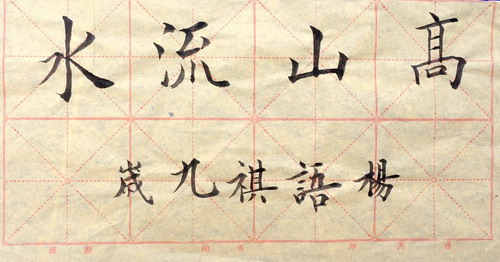 髙山流水
楊語祺九歲